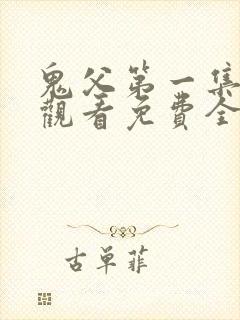 鬼父第一集
觀看免費全
古單菲